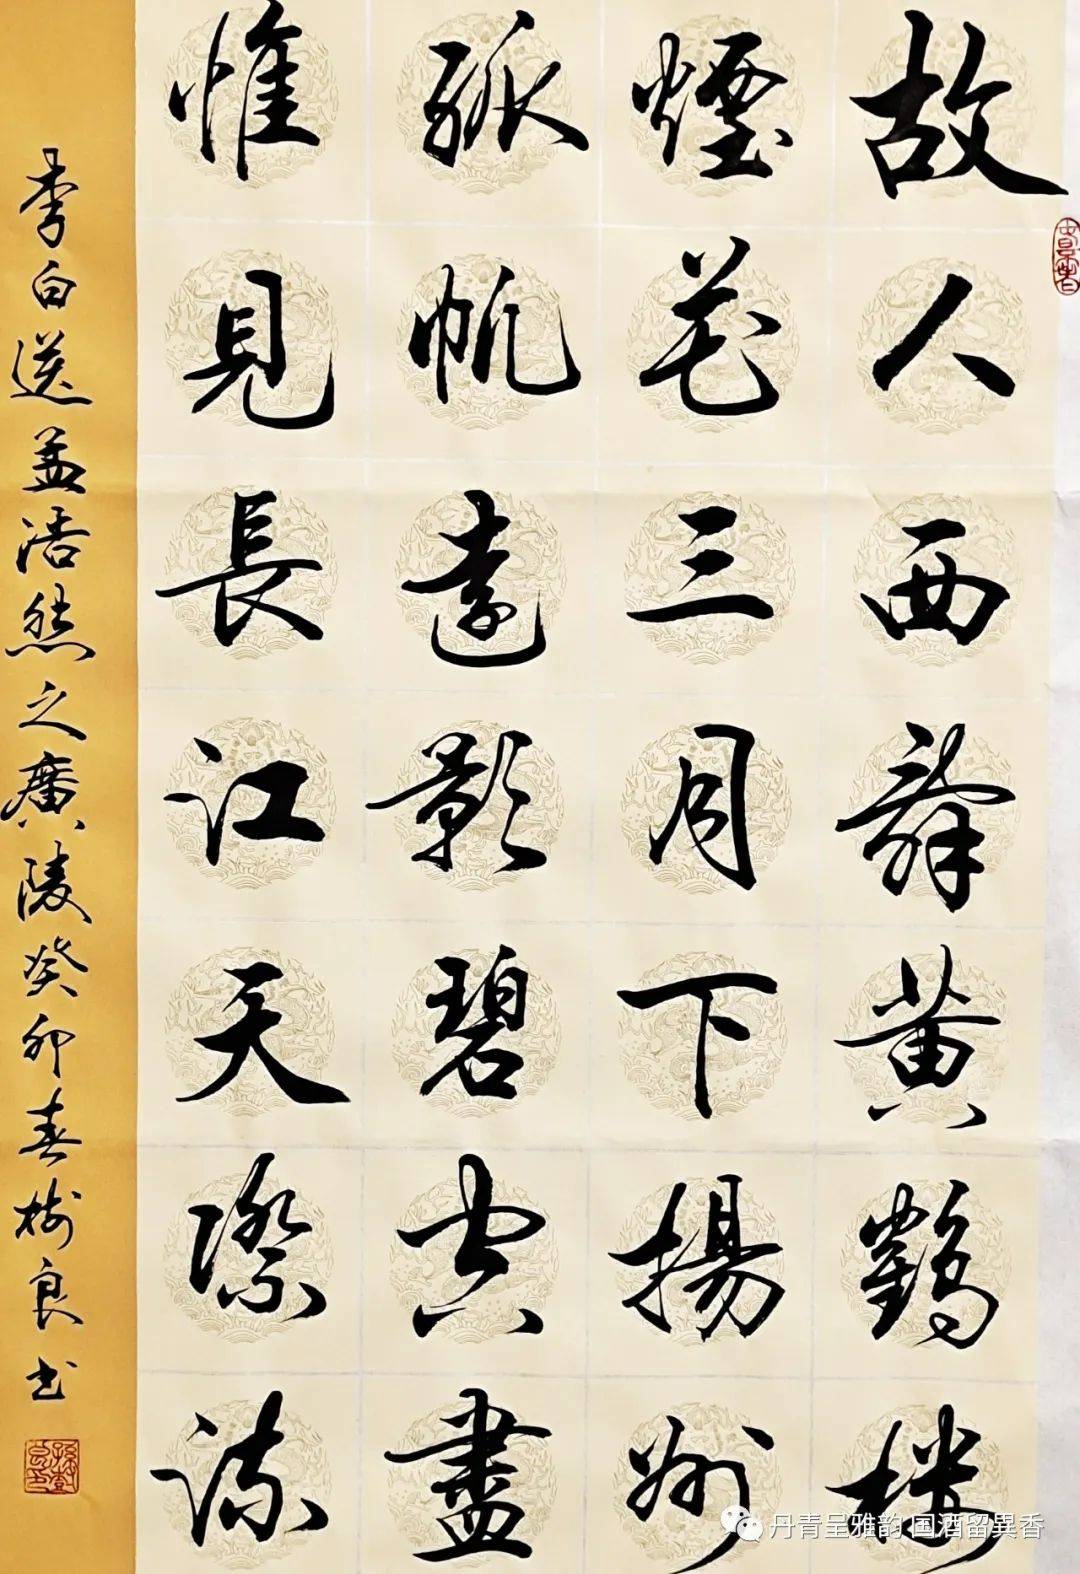 故人西辭黃鶴樓
煙花三月下揚州
孤帆遠影碧空盡
惟見長江天際流
李白送孟浩然之廣陵癸卯春樹良书
丹青呈雅韵国酒留異香